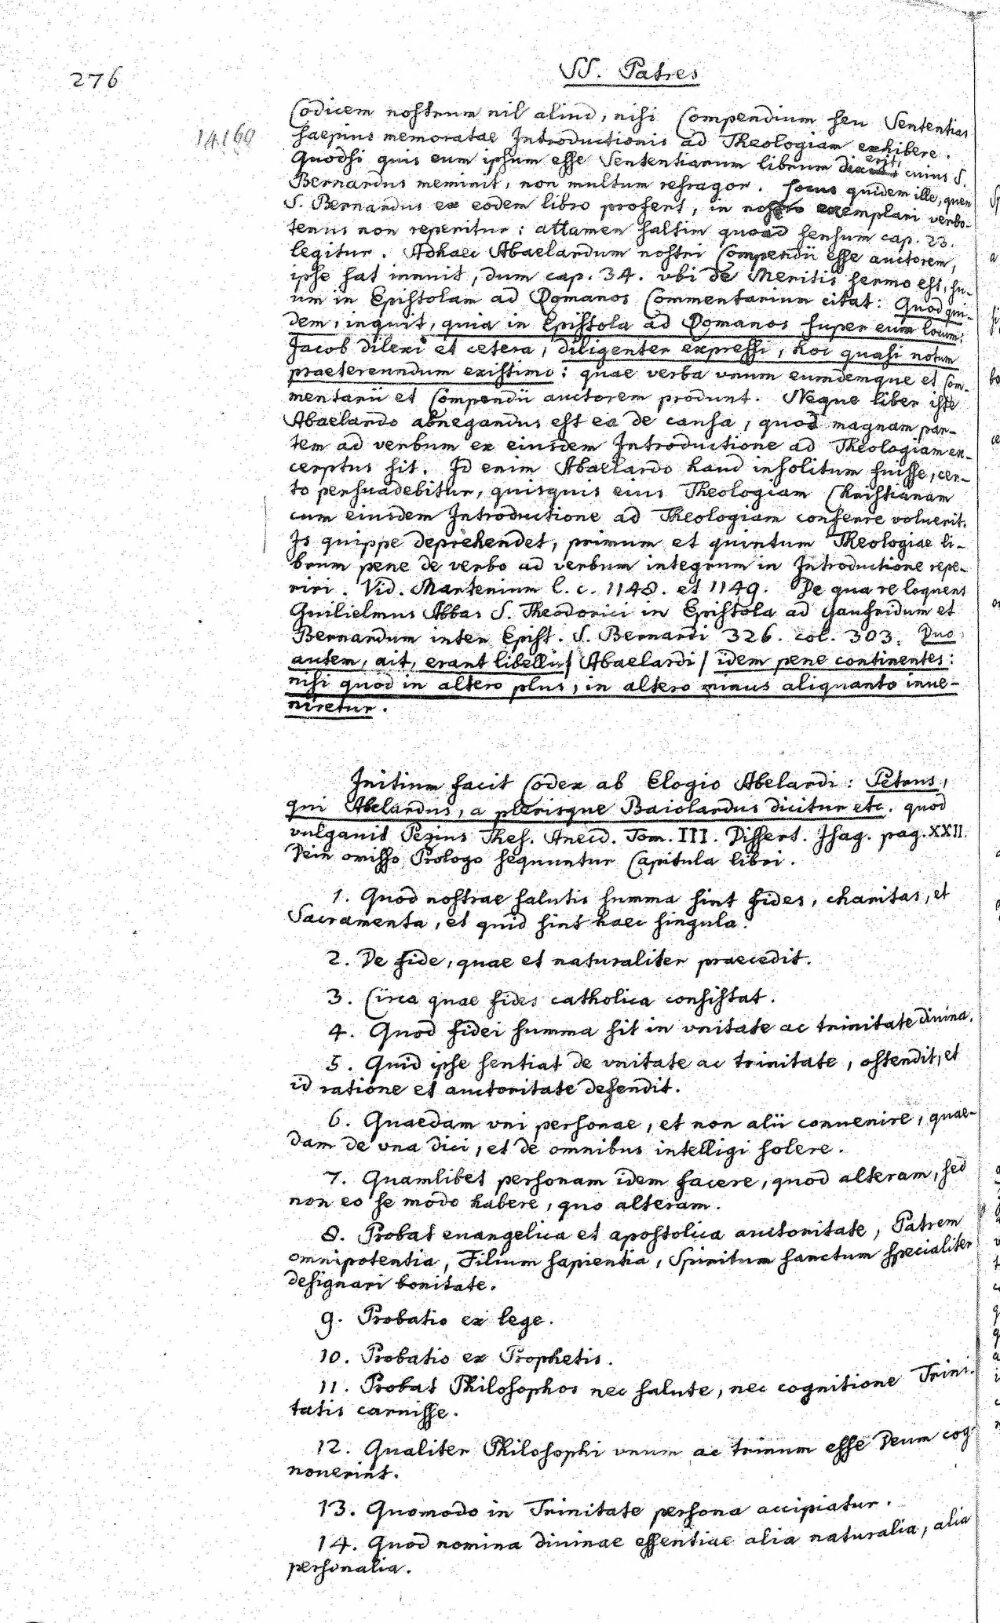 276
SS. Patres
14160
Codicem nostrum nil aliud, nisi Compendium seu Sententias
saepius memoratae Introductionis ad Theologiam exhibere.
Quodsi quis eum ipsum esse Sententiarum librum cuius S.
Bernardus meminit, non multum refragor. Locus quidem ille, quem
S. Bernardus ex eodem libro profert, in nostro exemplari verbo-
tenus non reperitur: attamen saltim quoad sensum cap. 23.
legitur. Adhaec Abaelardum nostri Compendii esse auctorem,
ipse sat innuit, dum cap. 34. vbi de Meritis sermo est, su-
um in Epistolam ad Romanos Commentarium citat: Quod qui-
dem, inquit, quia in Epistola ad Romanos super eum locum:
Jacob dilexi et cetera, diligenter expressi, hoc quasi notum
praetereundum existimo: quae verba vnum eumdemque et Com-
mentarii et Compendii auctorem produnt. Neque liber iste
Abaelardo abnegandus est ea de causa, quod magnam par-
tem ad verbum ex eiusdem Introductione ad Theologiam ex-
cerptus sit. Id enim Abaelardo haud insolitum fuisse, cer-
to persuadebitur, quisquis eius Theologiam Christianam
cum eiusdem Introductione ad Theologiam conferre voluerit.
Is quippe deprehendet, primum et quintum Theologiae li-
brum pene de verbo ad verbum integrum in Introductione repe-
riri. Vid. Martenium l. c. 1148. et 1149. De qua re loquens
Guilielmus Abbas S. Theodorici in Epistola ad Gaufridum et
Bernardum inter Epist. S. Bernardi 326. col. 303. Duo
autem, ait, erant libelli / Abaelardi / idem pene continentes:
nisi quod in altero plus, in altero minus aliquanto inve-
niretur.
Initium facit Codex ab Elogio Abelardi: Petrus,
qui Abelardus, a plerisque Baiolardus dicitur etc. quod
vulgavit Pezius Thes. Anecd. Tom. III. Dissert. Isag. pag. XXII.
Dein omisso Prologo sequuntur Capitula libri.
1. Quod nostrae salutis summa sint fides, charitas, et
Sacramenta, et quid sint haec singula.
2. De fide, quae et naturaliter praecedit.
3. Circa quae fides catholica consistat.
4. Quod fidei summa sit in vnitate ac trinitate divina.
5. Quid ipse sentiat de vnitate ac trinitate, ostendit, et
id ratione et auctoritate defendit.
6. Quaedam vni personae, et non alii convenire, quae-
dam de vna dici, et de omnibus intelligi solere.
7. Quamlibet personam idem facere, quod alteram, sed
non eo se modo habere, quo alteram.
8. Probat evangelica et apostolica auctoritate, Patrem
omnipotentia, Filium sapientia, Spiritum sanctum specialiter
designari bonitate.
9. Probatio ex lege.
10. Probatio ex Prophetis.
11. Probat Philosophos nec salute, nec cognitione Trini-
tatis carnisse.
12. Qualiter Philosophi vnum ac trinum esse Deum cog-
noverint.
13. Quomodo in Trinitate persona accipiatur.
14. Quod nomina divinae essentiae alia naturalia, alia
personalia.